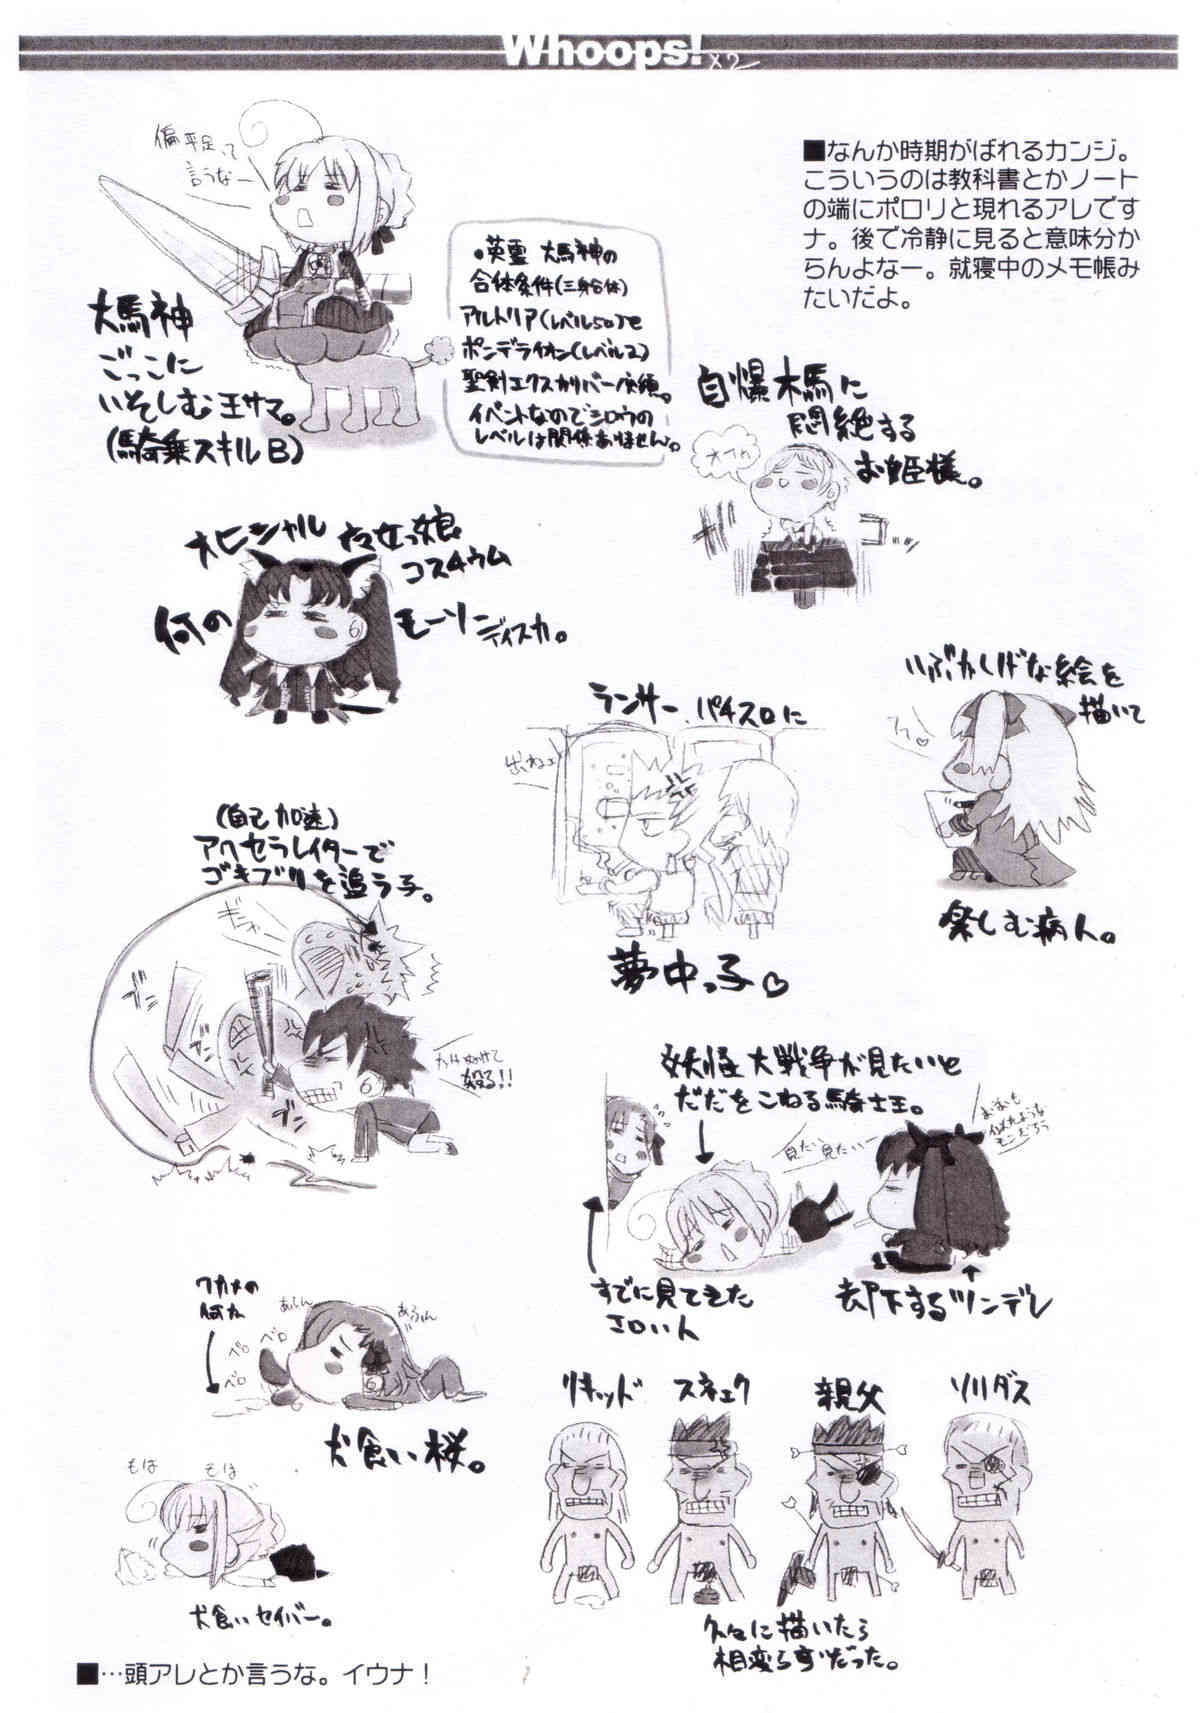 Whoops! x2
■なんか時期がばれるカンジ。
こういうのは教科書とかノート
の端にポロリと現れるアレです
ナ。後で冷静に見ると意味分か
らんよなー。就寝中のメモ帳み
たいだよ。
偏平足って
言うなー
大馬神
ごっこに
いそしむ王サマ。
(騎乗スキルB)
。英霊 大馬神の
合体条件(三身合体)
アルトリア(レベル50)と
ポンデライオン(レベル2)
聖剣エクスカリバー必須。
イベントなのでシロウの
レベルは関係ありません。
自爆木馬に
悶絶する
お姫様。
オヒシャル
コスチウム
何の
モーソー
ディスカ。
いぶかしげな絵を
描いて
楽しむ病人。
ランサー、パチスロに
出ねェ
夢中っ子♡
(自己加速)
アクセラレイターで
ゴキブリを追う子。
ブン
殺る!!
妖怪大戦争が見たいと
だだをこねる騎士王。
見たい見たいー
すでに見てきた
エロい人
却下するツンデレ
ワカメの
何か
ペロ
ペロ
ペロ
犬食い桜。
もは
もは
犬食いセイバー。
リキッド
スネェク
親父
ソリダス
久々に描いたら
相変らずだった。
■…頭アレとか言うな。イウナ！